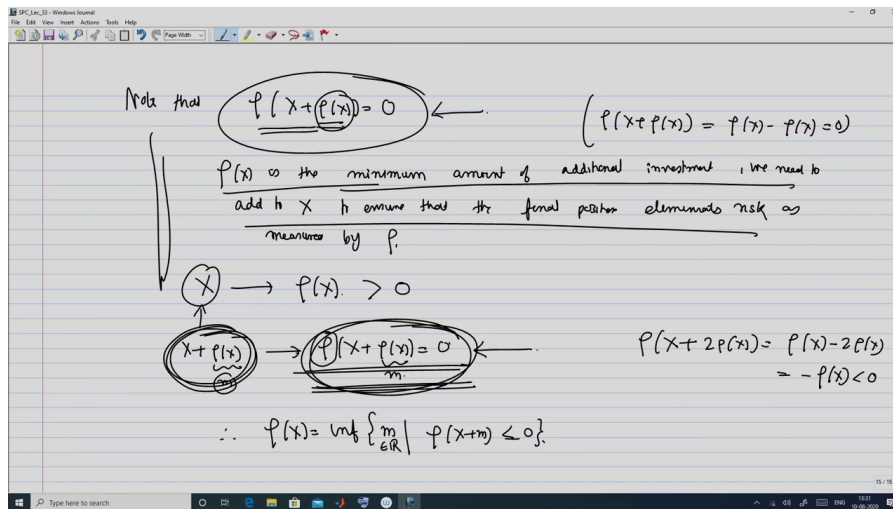 SPC_Lec_33 - Windows Journal
File Edit View Insert Actions Tools Help
Page Width
Note that ρ(X+ρ(X)) = 0 ←
(ρ(X+ρ(X)) = ρ(X) - ρ(X) = 0)
ρ(X) is the minimum amount of additional investment, we need to
add to X to ensure that the final position eliminates risk as
measured by ρ.
X → ρ(X) > 0
X + ρ(X) → ρ(X + ρ(X)) = 0 ←
m m
ρ(X + 2ρ(X)) = ρ(X) - 2ρ(X)
= -ρ(X) < 0
∴ ρ(X) = inf { m ∈ℝ | ρ(X+m) ≤ 0}.
15 / 15
Type here to search
ENG
13:31
10-08-2020